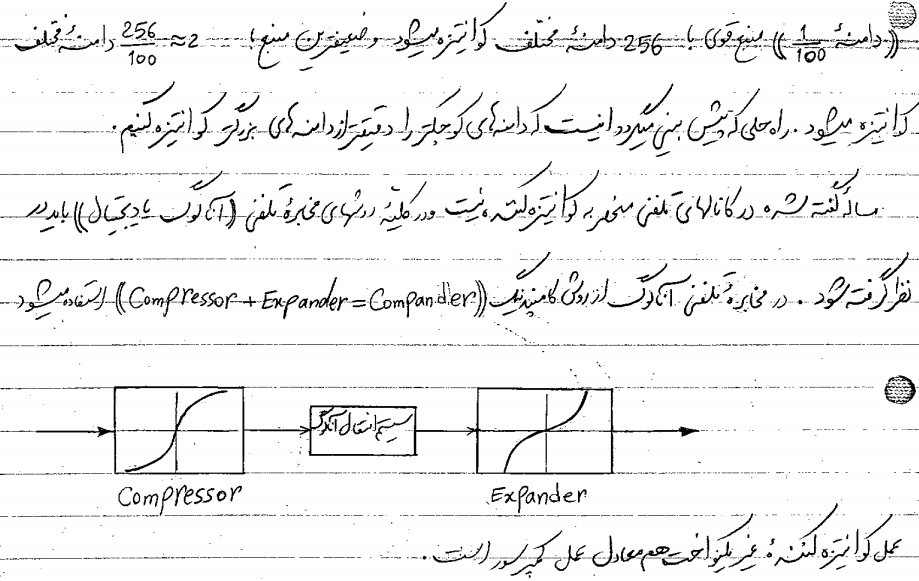 ((دامنهٔ 1/100)) منبع قوی با 256 دامنهٔ مختلف کوانتیزه میشود و ضعیفترین منبع با 2 ≈ 256/100 دامنهٔ مختلف
کوانتیزه میشود. راه حلی که پیش بینی میگردد اینست که دامنه های کوچکتر را دقیقتر از دامنه های بزرگتر کوانتیزه کنیم.
مسالهٔ گفته شده در کانالهای تلفنی منحصر به کوانتیزه کننده نیست و در کلیهٔ روشهای مخابرهٔ تلفنی ((آنالوگ یا دیجیتال)) باید در
نظر گرفته شود. در مخابرهٔ تلفنی آنالوگ از روش کامپندینگ ((Compressor + Expander = Compander)) استفاده میشود
سیستم انتقال آنالوگ
Compressor
Expander
عمل کوانتیزه کنندهٔ غیر یکنواخت هم معادل عمل کمپرسور است.